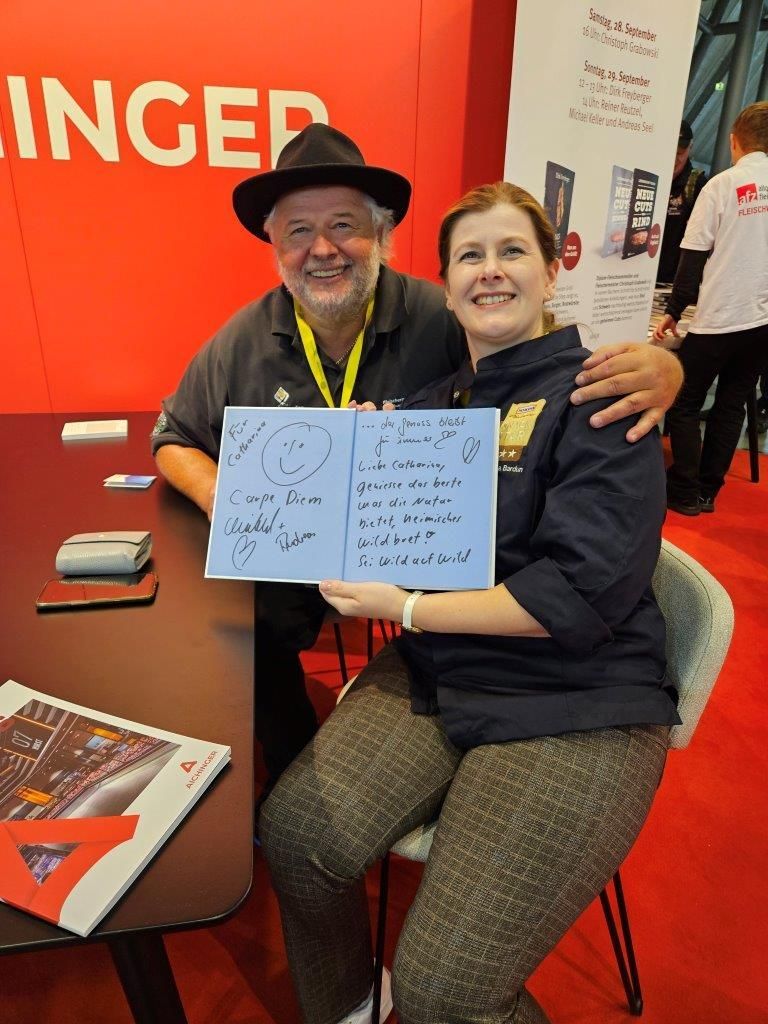 HINGER
Samstag, 28. September
16 Uhr: Christoph Grabowski
Sonntag, 29. September
12 – 13 Uhr: Dirk Freyberger
14 Uhr: Reiner Reutzel,
Michael Keller und Andreas Seel
NEUE
CUTS
NEUE
CUTS
RIND
afz
FLEISCHW
Für
Catharina
Carpe Diem
+
Andreas
... der Genuss bleibt
für immer
Liebe Catharina,
geniesse das beste
was die Natur
bietet, heimisches
Wildbret!
Sei Wild auf Wild
a Bardun
07
AICHINGER